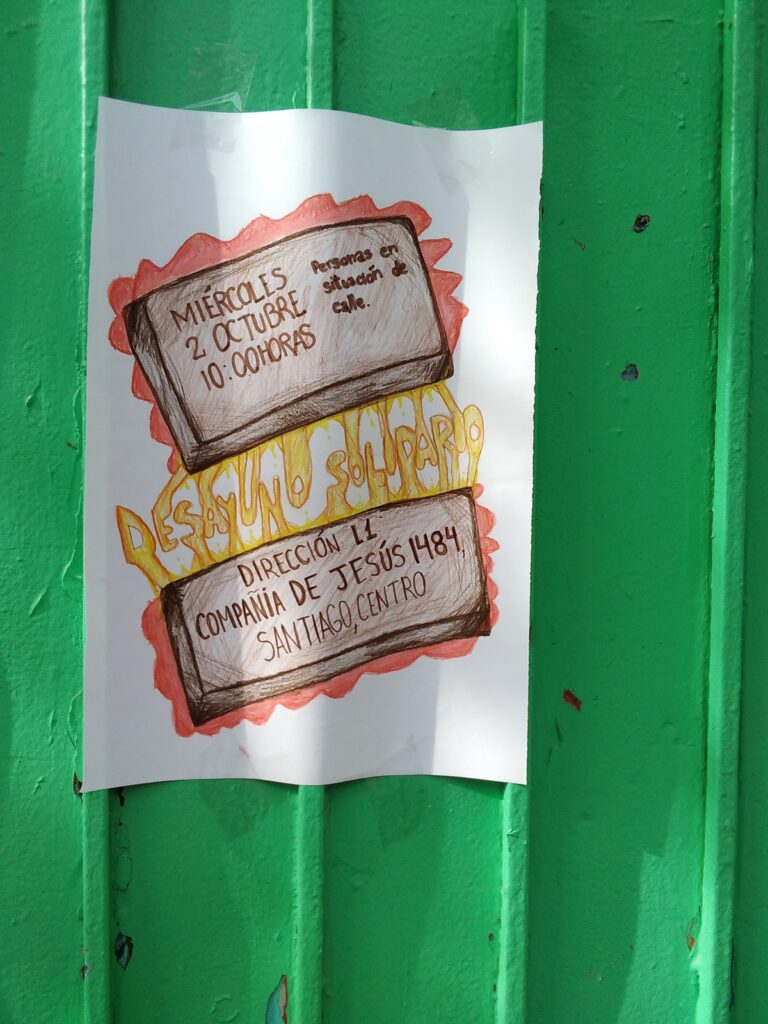 MIÉRCOLES
2 OCTUBRE
10:00HORAS
Personas en
situación de
calle.
DESAYUNO SOLIDARIO
DIRECCIÓN L1
COMPAÑÍA DE JESÚS 1484,
SANTIAGO, CENTRO